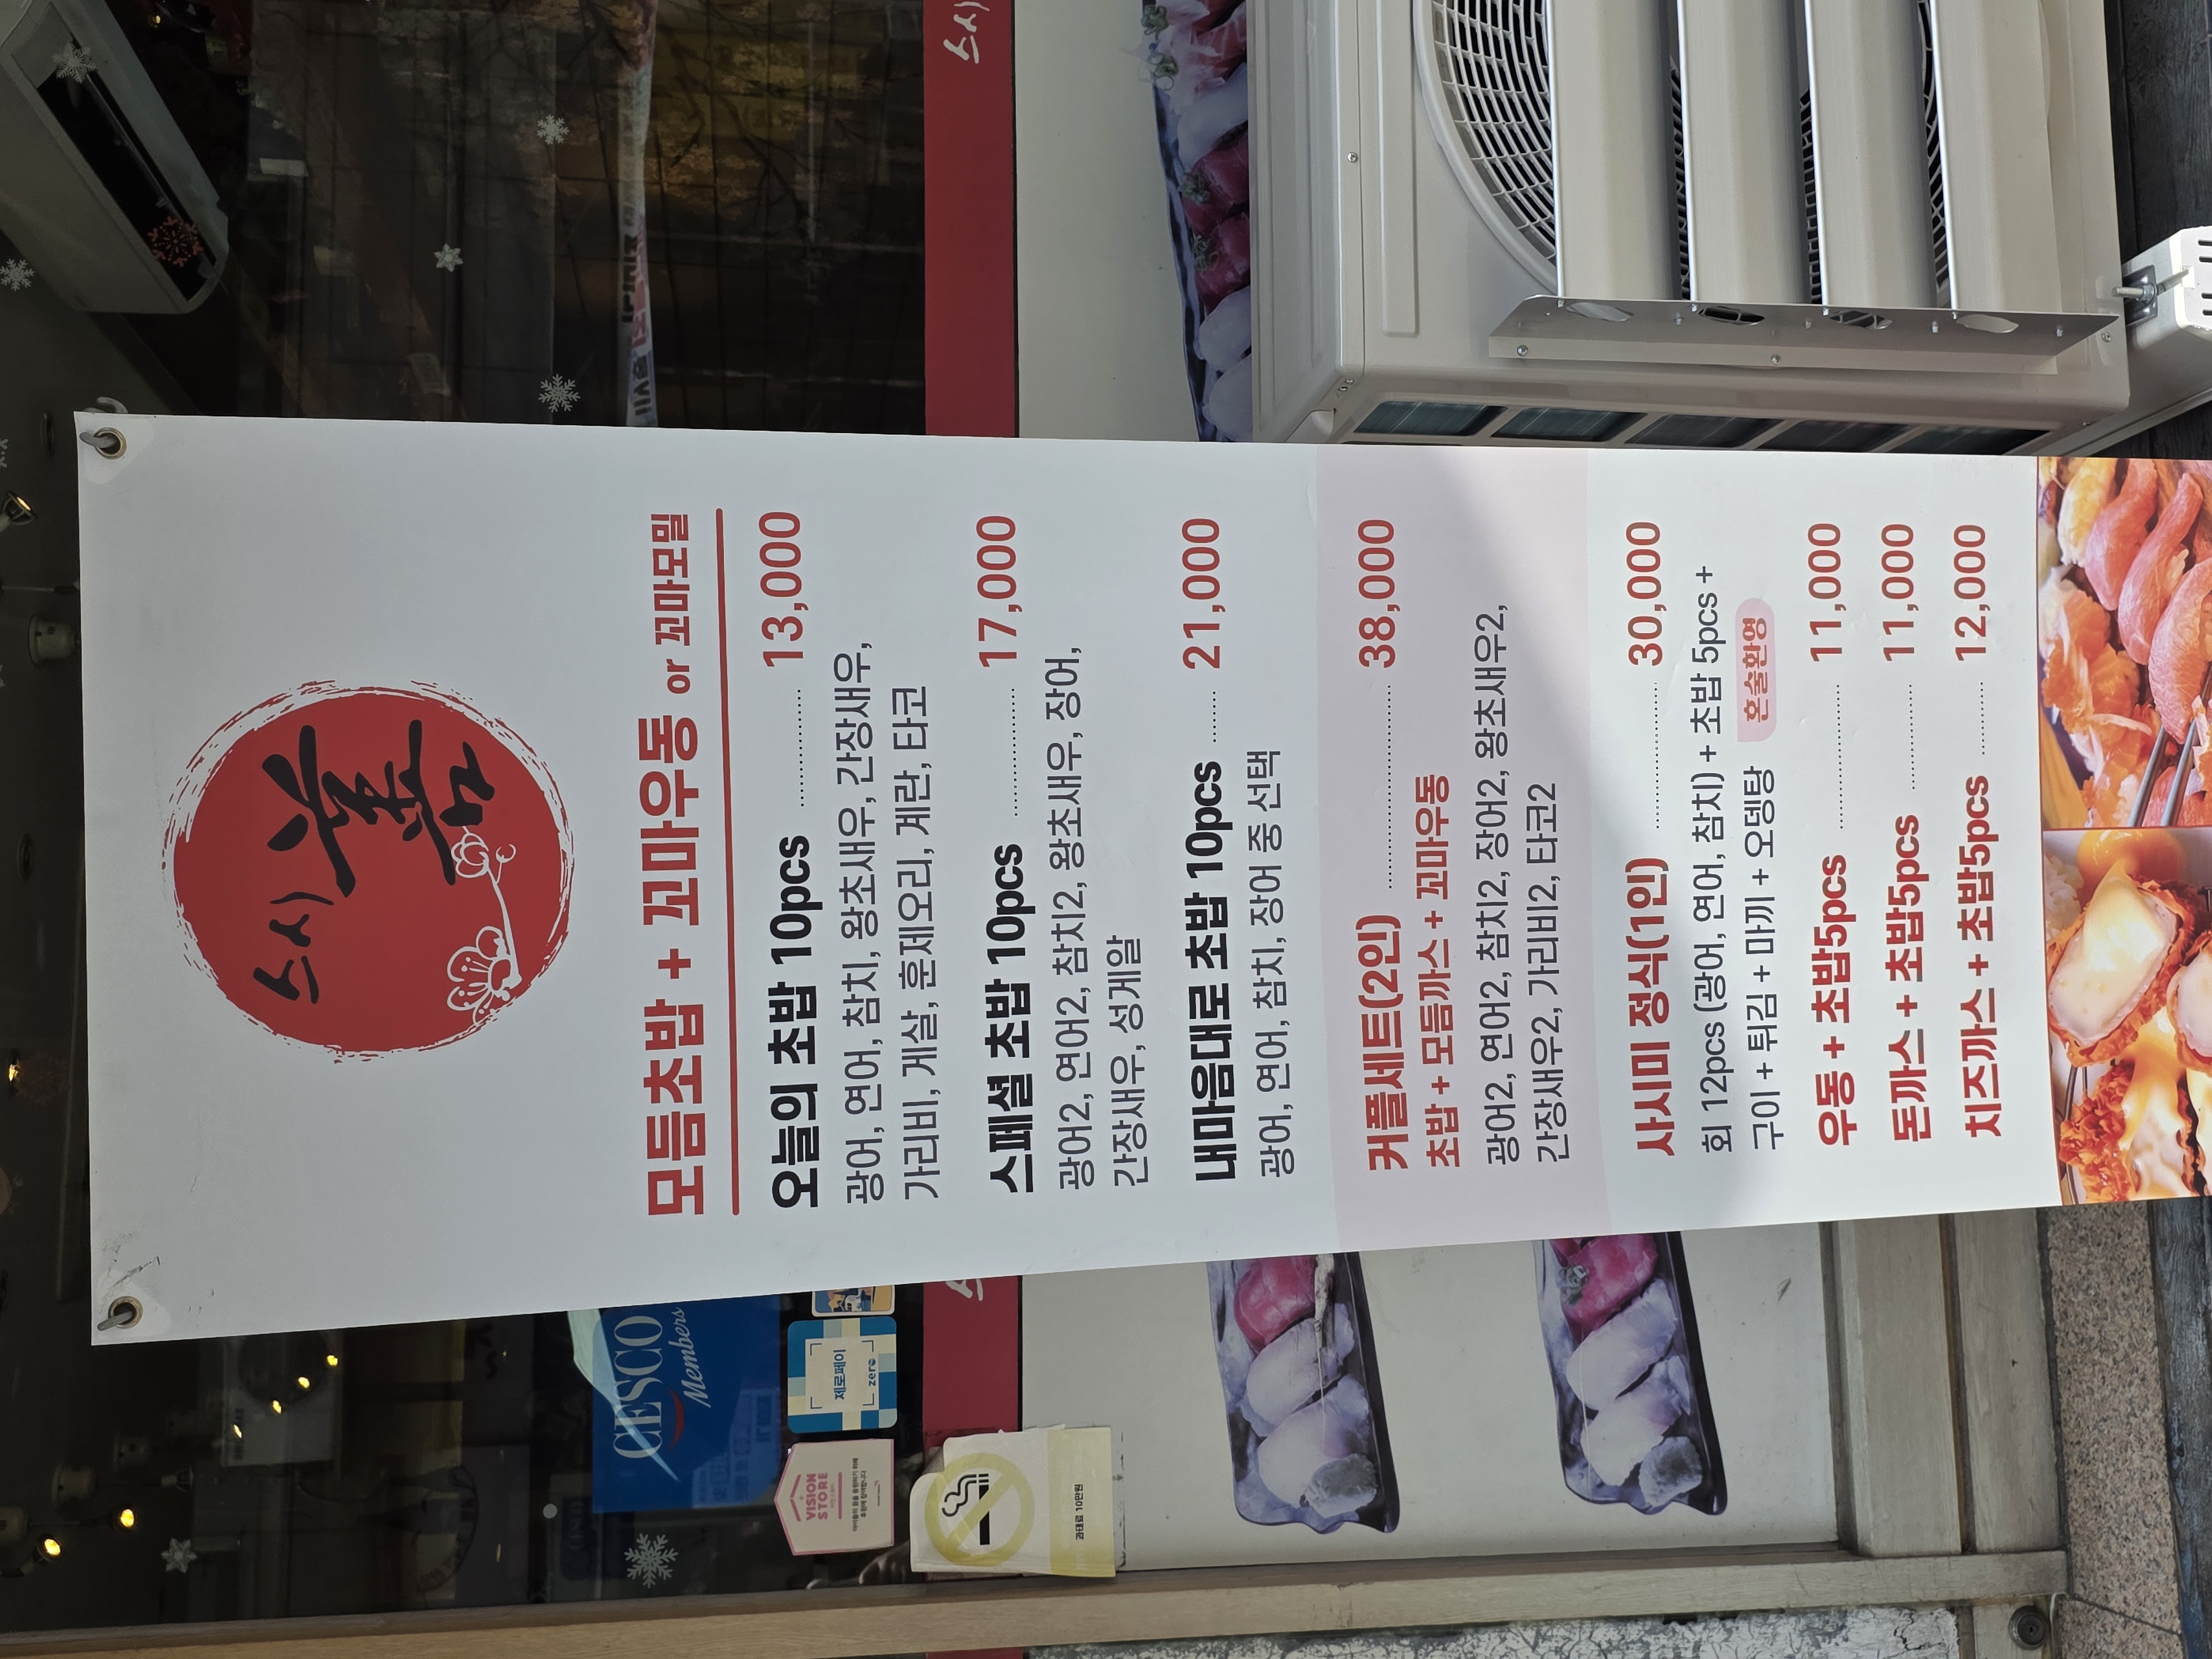 스시
모듬초밥 + 꼬마우동 or 꼬마모밀
오늘의 초밥 10pcs ............ 13,000
광어, 연어, 참치, 왕초새우, 간장새우,
가리비, 게살, 훈제오리, 계란, 타코
스페셜 초밥 10pcs ............. 17,000
광어2, 연어2, 참치2, 왕초새우, 장어,
간장새우, 성게알
내마음대로 초밥 10pcs ....... 21,000
광어, 연어, 참치, 장어 중 선택
커플세트(2인) .................... 38,000
초밥 + 모듬까스 + 꼬마우동
광어2, 연어2, 참치2, 장어2, 왕초새우2,
간장새우2, 가리비2, 타코2
사시미 정식(1인) .............. 30,000
회 12pcs (광어, 연어, 참치) + 초밥 5pcs +
구이 + 튀김 + 마끼 + 오뎅탕 혼술환영
우동 + 초밥5pcs .............. 11,000
돈까스 + 초밥5pcs .......... 11,000
치즈까스 + 초밥5pcs ....... 12,000
CESCO
Members
제로페이
zero
VISION
STORE
과태료 10만원
스시